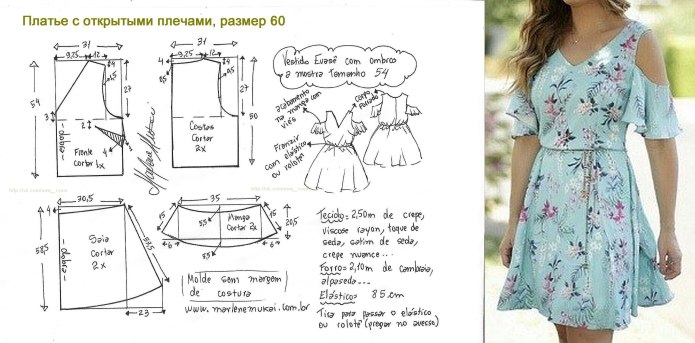 Платье с открытыми плечами, размер 60
31
9,25
12
4
0,5
54
27
3
2
4
dobra
Frente
cortar 1x
31
12
4
4
0,5
0,5
27
50
Costas
Cortar
2x
Vestido Evasê com ombro
a mostra Tamanho 54
acabamento
na manga com
viés
corpo
Forrado
Franzir
com elástico
ou rolotê
30,5
4
58,5
dobra
Saia
Cortar
2x
23
35
15
5,5
Manga
Cortar 2x
15
20,5
6
5,5
6
Molde sem margem
de costura
www.marlenemukai.com.br
Tecido= 2,50m de crepe,
viscose rayon, toque de
seda, satim de seda,
crepe nuance...
Forro= 2,10m de cambraia,
alpaseda...
Elástico= 85 cm
Tira para passar o elástico
ou rolotê (pregar no avesso)